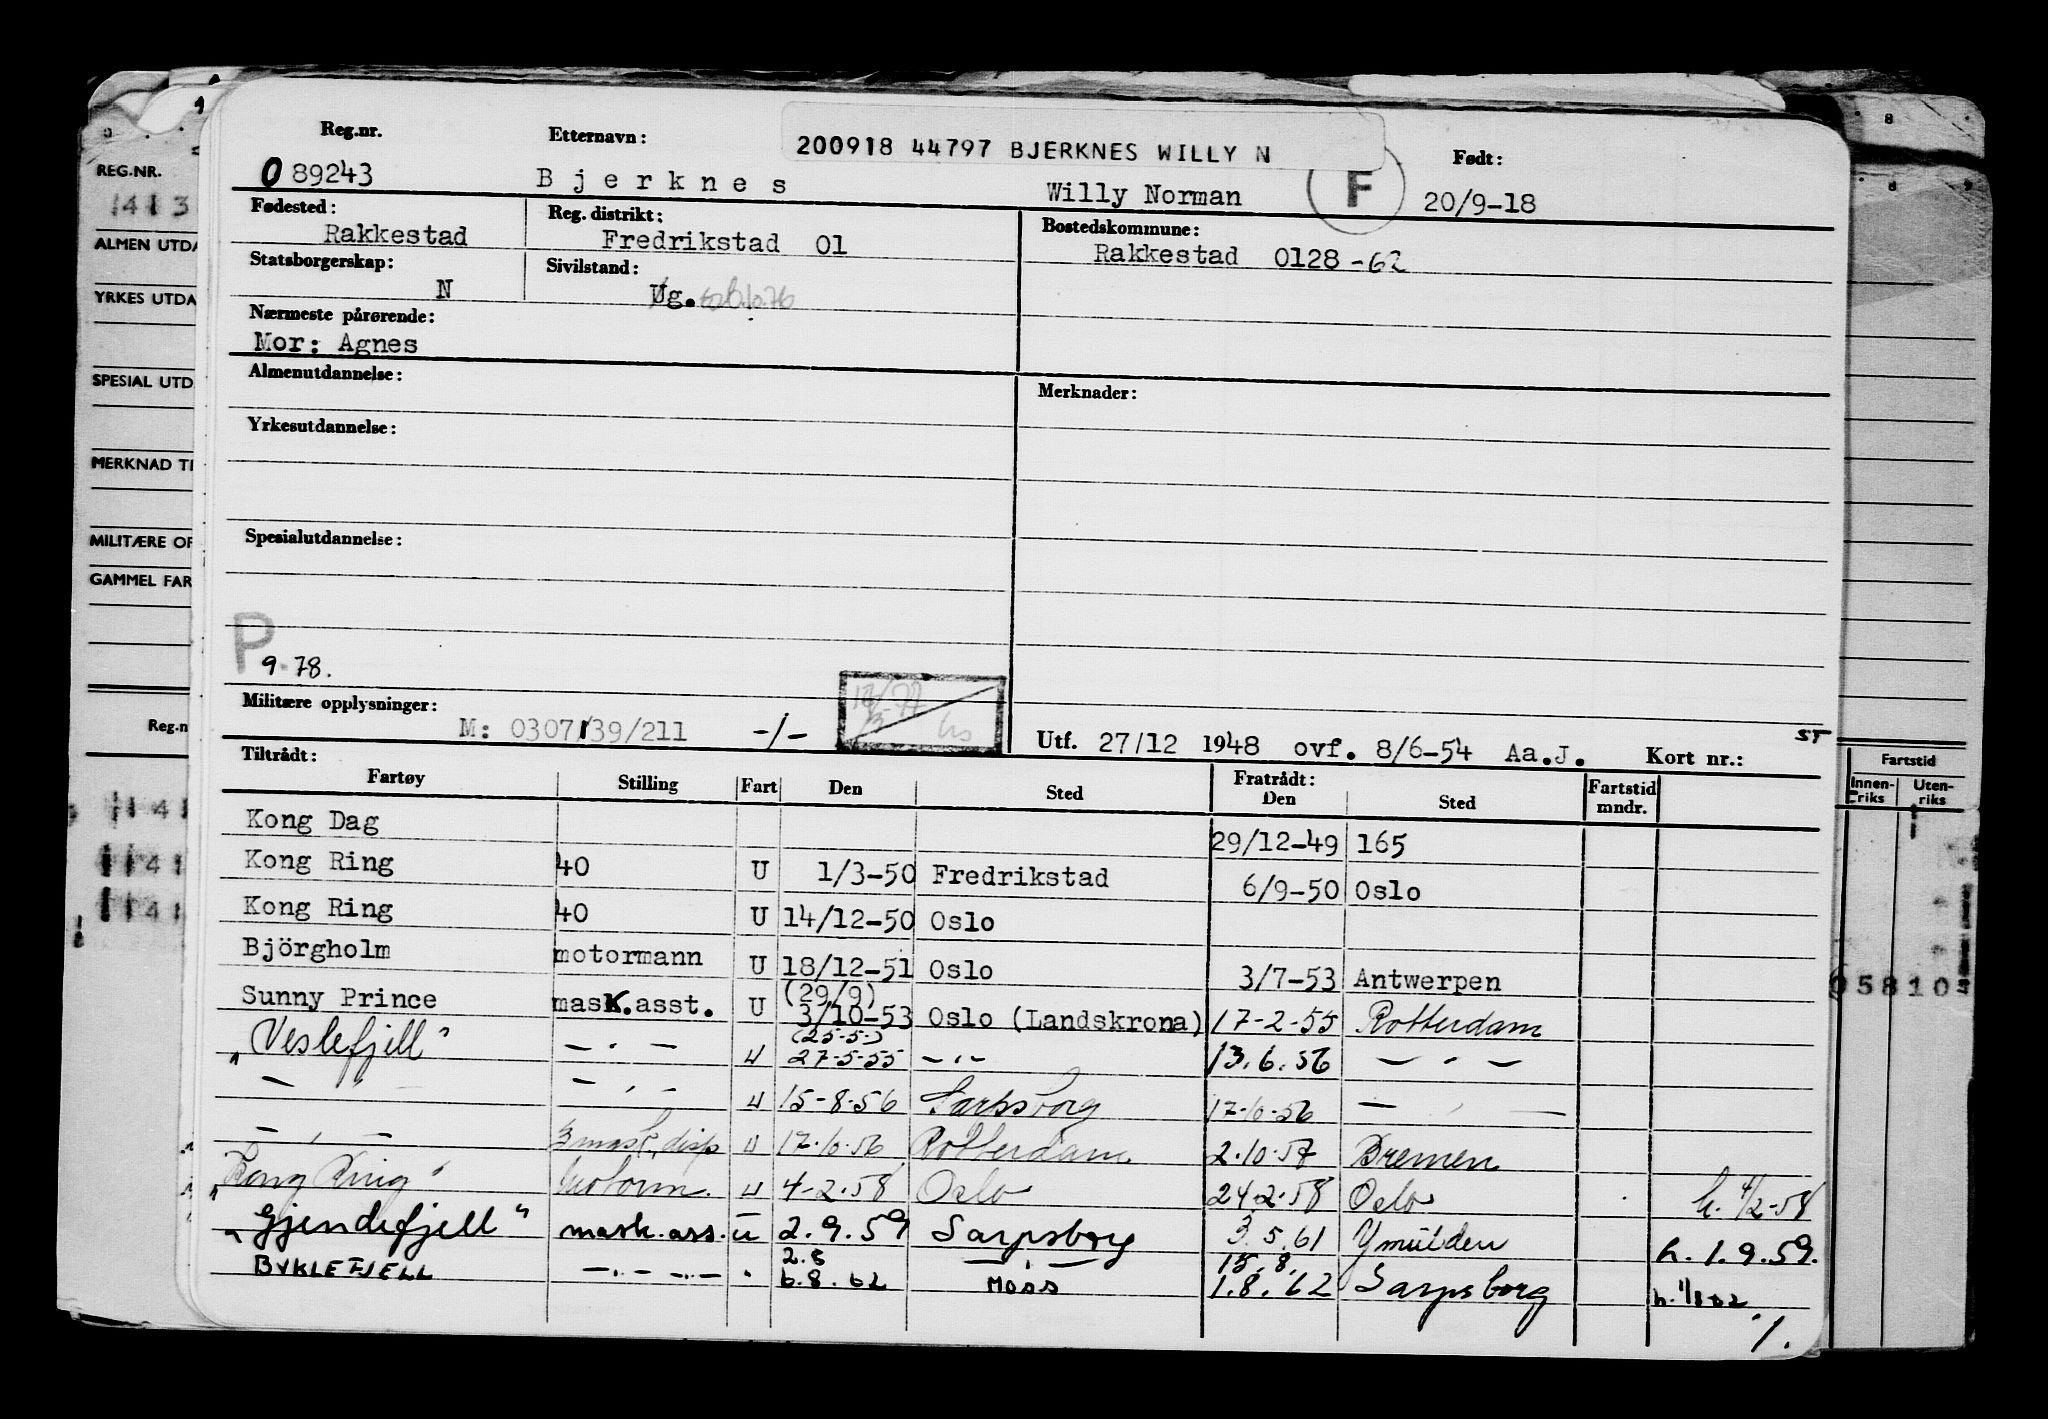 Reg.nr. Etternavn: 200918 44797 BJERKNES WILLY N Født:
089243 Bjerknes Willy Norman F 20/9-18
Fødested: Reg. distrikt: Bostedskommune:
Rakkestad Fredrikstad 01 Rakkestad 0128-62
Statsborgerskap: Sivilstand:
N Ug.
Nærmeste pårørende:
Mor: Agnes
Almenutdannelse: Merknader:
Yrkesutdannelse:
Spesialutdannelse:
P
9.78.
Militære opplysninger:
M: 0307/39/211 -/- Utf. 27/12 1948 ovf. 8/6-54 Aa.J. Kort nr.: ST
Tiltrådt: Fratrådt:
Fartøy Stilling Fart Den Sted Den Sted Fartstid mndr.
Kong Dag 29/12-49 165
Kong Ring 40 U 1/3-50 Fredrikstad 6/9-50 Oslo
Kong Ring 40 U 14/12-50 Oslo
Björgholm motormann U 18/12-51 Oslo 3/7-53 Antwerpen
Sunny Prince mask.asst. U (29/9) 3/10-53 Oslo (Landskrona) 17-2-55 Rotterdam
"Veslefjell" — . — u (25-5-) 27-5-55 — . — 13.6.56 — . —
— , — — , — u 15-8-56 Sarpsborg 17-10-56 — , —
— , — 3 mask. disp u 17.10.56 Rotterdam 2.10.57 Bremen
"Kong Ring" Motorm. u 4-2.58 Oslo 24.2.58 Oslo h. 4/2-58
"Gjendefjell" mask.ass. u 2.9.59 Sarpsborg 3.5.61 Ymuiden h.1.9.59.
BYKLEFJELL — . — . — 2.8 6.8.62 Moss 15.8. 1.8.62 Sarpsborg
REG.NR.
ALMEN UTDA
YRKES UTDA
SPESIAL UTD
MERKNAD TI
MILITÆRE OP
GAMMEL FAR
Reg.n
Fartstid
Innen-riks Uten-riks